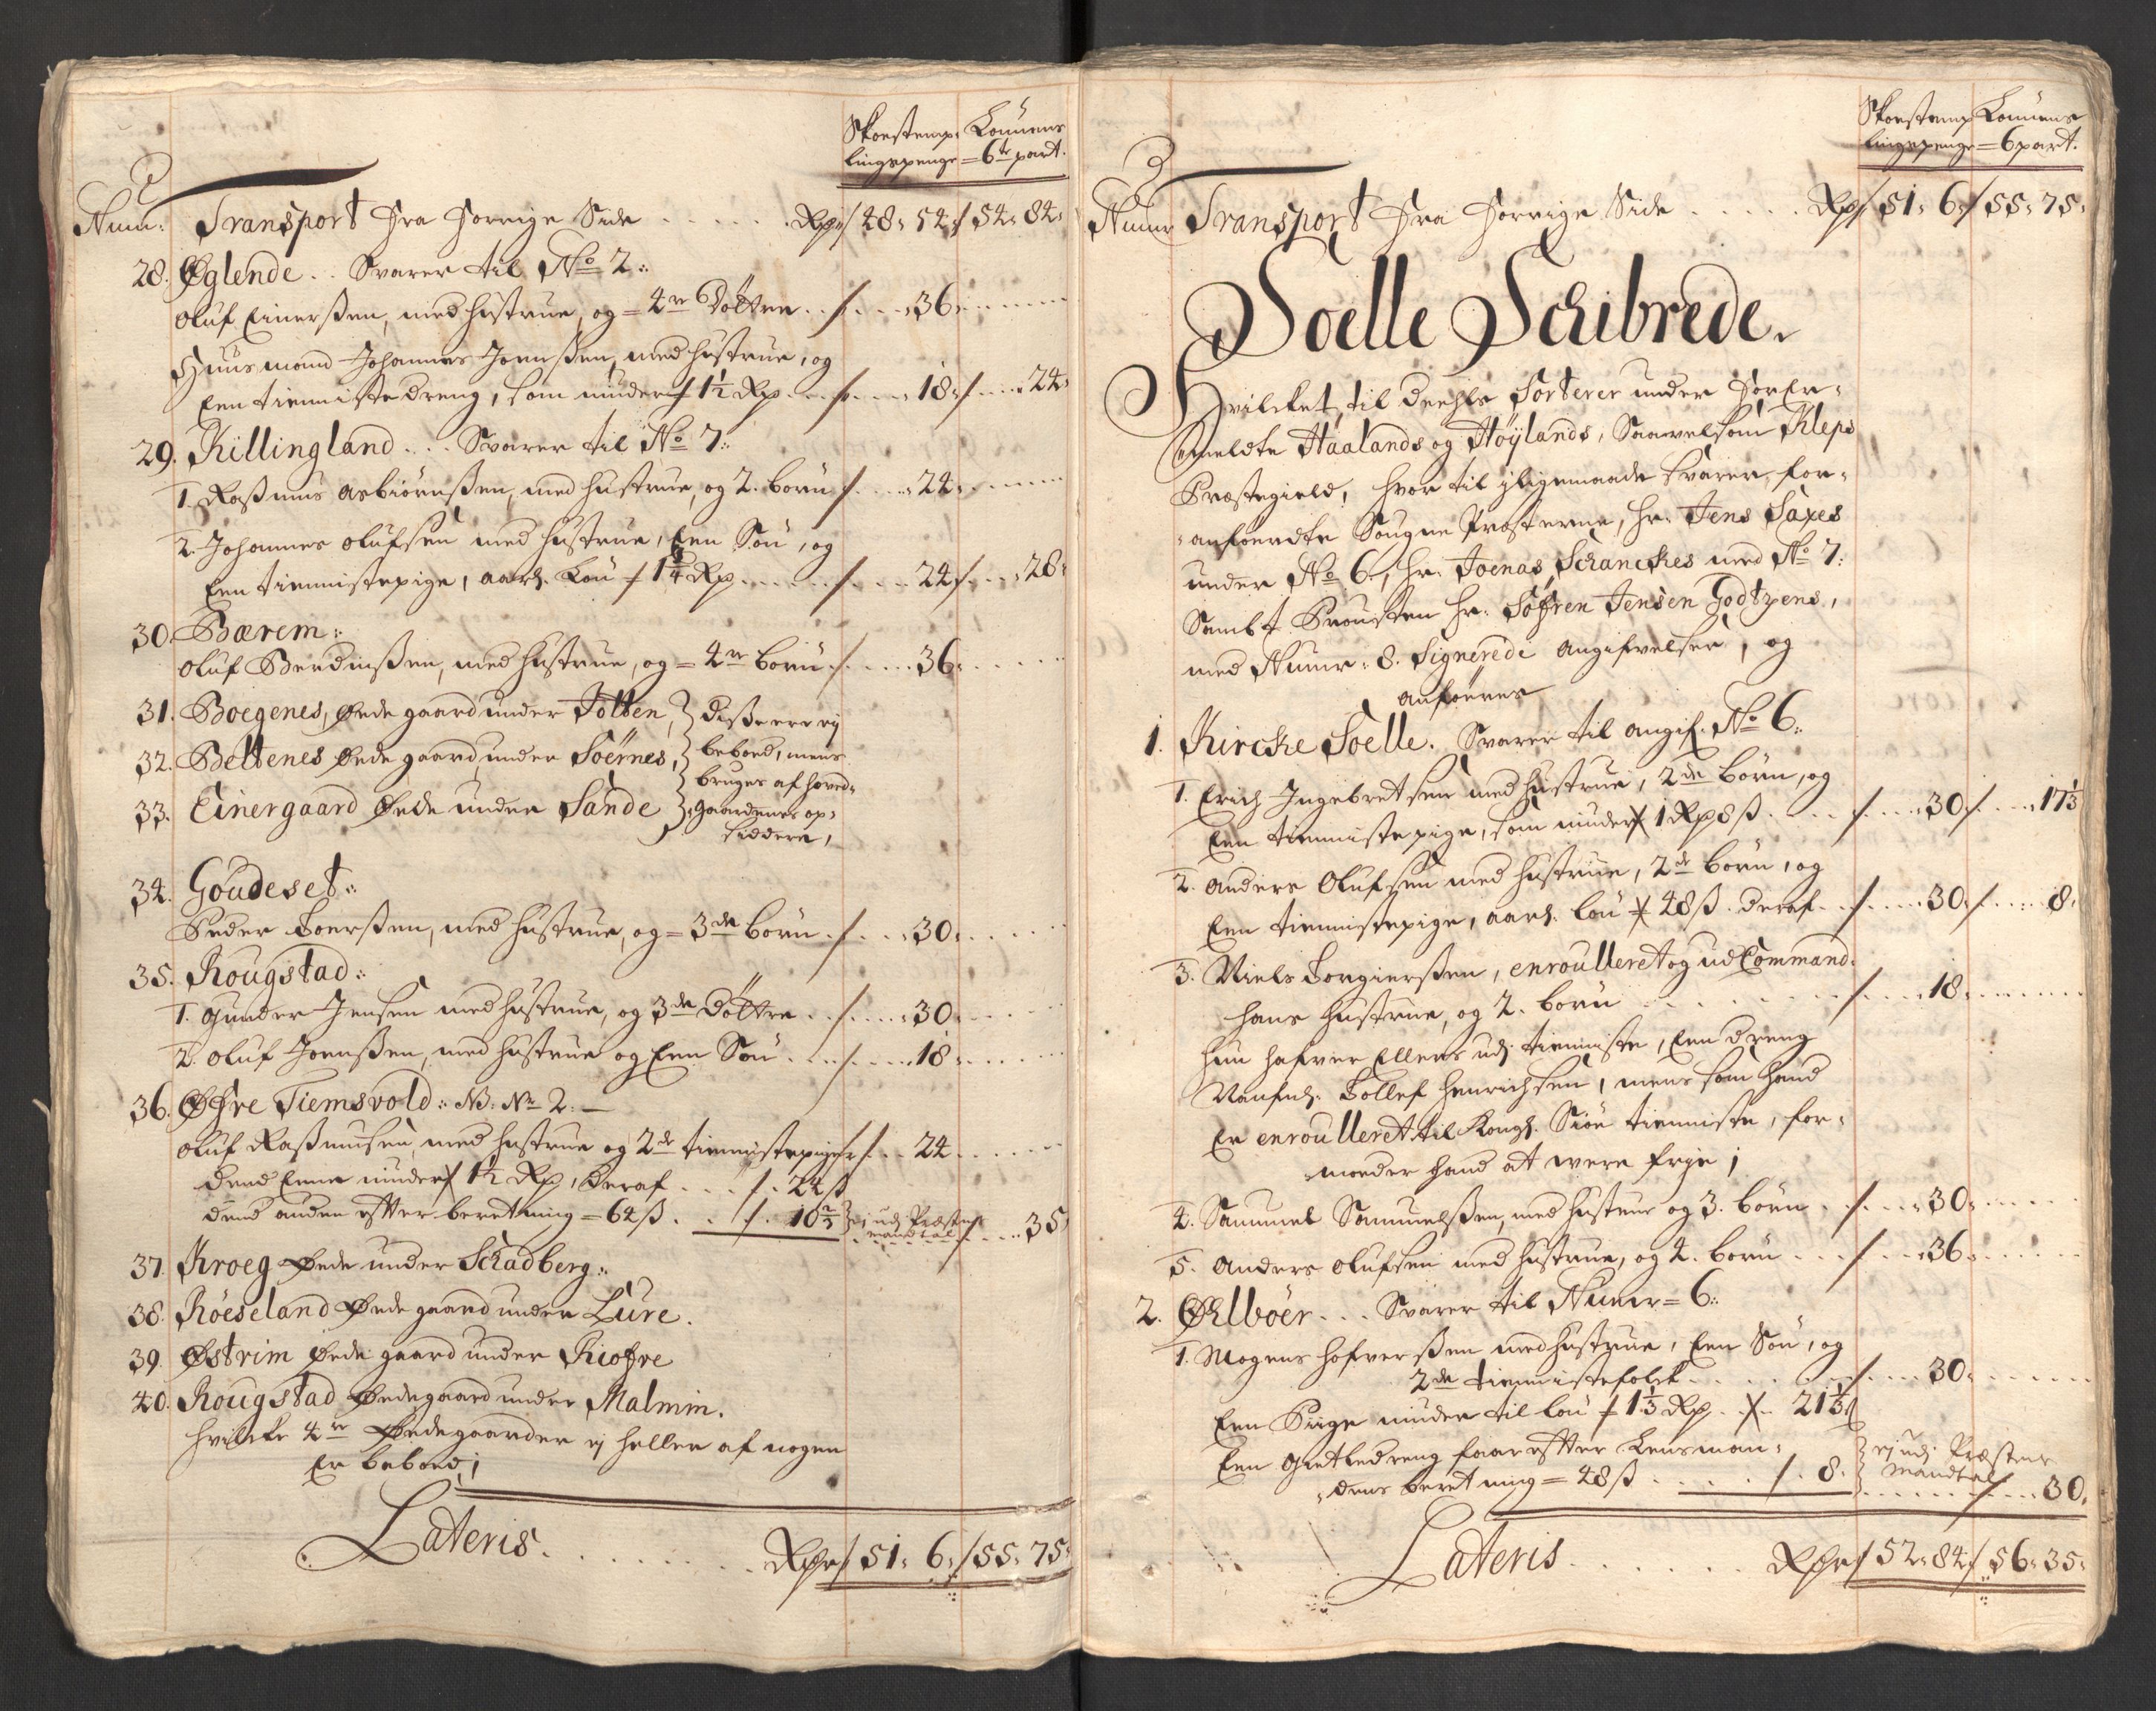 Skoestemp= Lønnens
lingspenge = 6te part.
Num: Transport fra forrige Side . . . . . Rdr / 48: 54 / 54: 84:
28. Øglende . . Svarer til No 2:
Oluf Einersen, med hustrue, og = 4re Døttre . . / . . . 36:
Huusmand Johannes Joensen, med hustrue, og
Een tienniste dreng, som niuder / 1½ Rdr . . . / . . . 18: / . . . 24:
29. Killingland . . . Svarer til No 7:
1. Rasmus Asbiørnsen, med hustrue, og 2. børn / . . . 24:
2. Johannes Olufsen med hustrue, Een Søn, og
Een tiennistepige, aarl. Løn / 1¾ Rdr . . . . . / . . . 24 / . . . 28:
30. Bærem:
Oluf Berdinsen, med hustrue, og = 4re børn . / . . . 36:
31. Boegenes, Øede gaard under Jolten, } disse er ej
32. Beltenes Øede gaard, under Soërnes, } beboed, mens
bruges af hoved=
33. Einergaard Øede under Sande } gaardenes op=
siddere,
34. Goudeset:
Peder Toersen, med hustrue, og = 3de børn . / . . . 30:
35. Rougstad:
1. Gunder Jensen med hustrue, og 3de Døttre . . / . . . 30:
2. Oluf Joensen, med hustrue og Een Søn . . . / . . . 18:
36. Øfre Tiemsvold: NB: No 2: —
Oluf Rasmusen, med hustrue og 2de tiennistepiger / . . . 24
dend Eene niuder / 1½ Rdr, deraf . . . / . 24 ß
dend anden efter beretning = 64 ß . . / . 10⅔ } ej udj Præstens
mandtal / . . . 35
37. Kroeg Øede under Schadberg:
38. Röeseland Øede gaard under Lure.
39. Østrim Øede gaard under Riofre
40. Rougstad Øedegaard under Malmin.
hvilcke 4re Øedegaarder ej heller af nogen
Er beboed;
Lateris . . . . . . . . Rdr / 51: 6: / 55: 75:
Skoestemp Lønnens
lingspenge = 6 part.
Numr Transport fra forrige Side . . . . . Rdr / 51: 6: / 55: 75:
Soelle Schibrede.
Hvilcket til deels Sorterer under forer=
meldte Haalands og Höylands, Saavelsom Kleps
Præstegield, hvor til ligemaade svarer, for=
anførdte Sougne Præsterne, Hr. Jens Saxes
under No 6, Hr. Joenas Schanckes med No 7:
Sambt Provsten Hr. Söfren Jensen Godtzens,
med Numr: 8. Signerede Angifvelser, og
anføeres
1. Kircke Soelle. Svarer til angif. No 6:
1. Erich Ingebretsen med hustrue, 2de børn, og
Een tiennistepige, som niuder / 1 Rdr 8 ß . . . . / . . . 30 / . . . 17⅓
2. Anders Olufsen med hustrue, 2de børn, og
Een tiennistepige, aarl. løn / 48 ß. deraf . . / . . . 30 / . . . 8:
3. Niels Torgiersen, enroulleret og ud Command:
hans hustrue, og 2. børn . . . . . . . . / . . . 18:
hun hafver Ellers udj tienniste, Een dreng
Nafnl. Tollef Henrichsen, mens som hand
Er enroulleret til Kongl. Siøe tienniste, for=
moeder hand at were frije;
4. Sammel Sammelsen, med hustrue og 3. børn . / . . . 30:
5. Anders Olufsen med hustrue, og 4. børn . . . / . . . 36:
2. Ølbøer . . . Svarer til Numr = 6:
1. Mogens Hofversen med hustrue, Een Søn, og
2de tiennistefolck . . . . . . / . . . 30:
Een Piige niuder til løn / 1⅓ Rdr . / . 21⅓
Een giætledreng faar efter Lensman= } ej udj Præstens
dens beretning = 48 ß . . . . . / . 8: } Mandtal / . . . 30:
Lateris . . . . . . Rdr / 52: 84 / 56: 35: